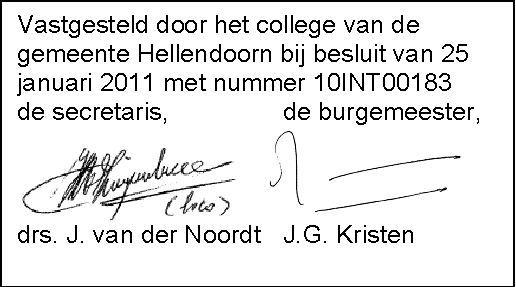 Vastgesteld door het college van de
gemeente Hellendoorn bij besluit van 25
januari 2011 met nummer 10INT00183
de secretaris, de burgemeester,
(loco)
drs. J. van der Noordt J.G. Kristen